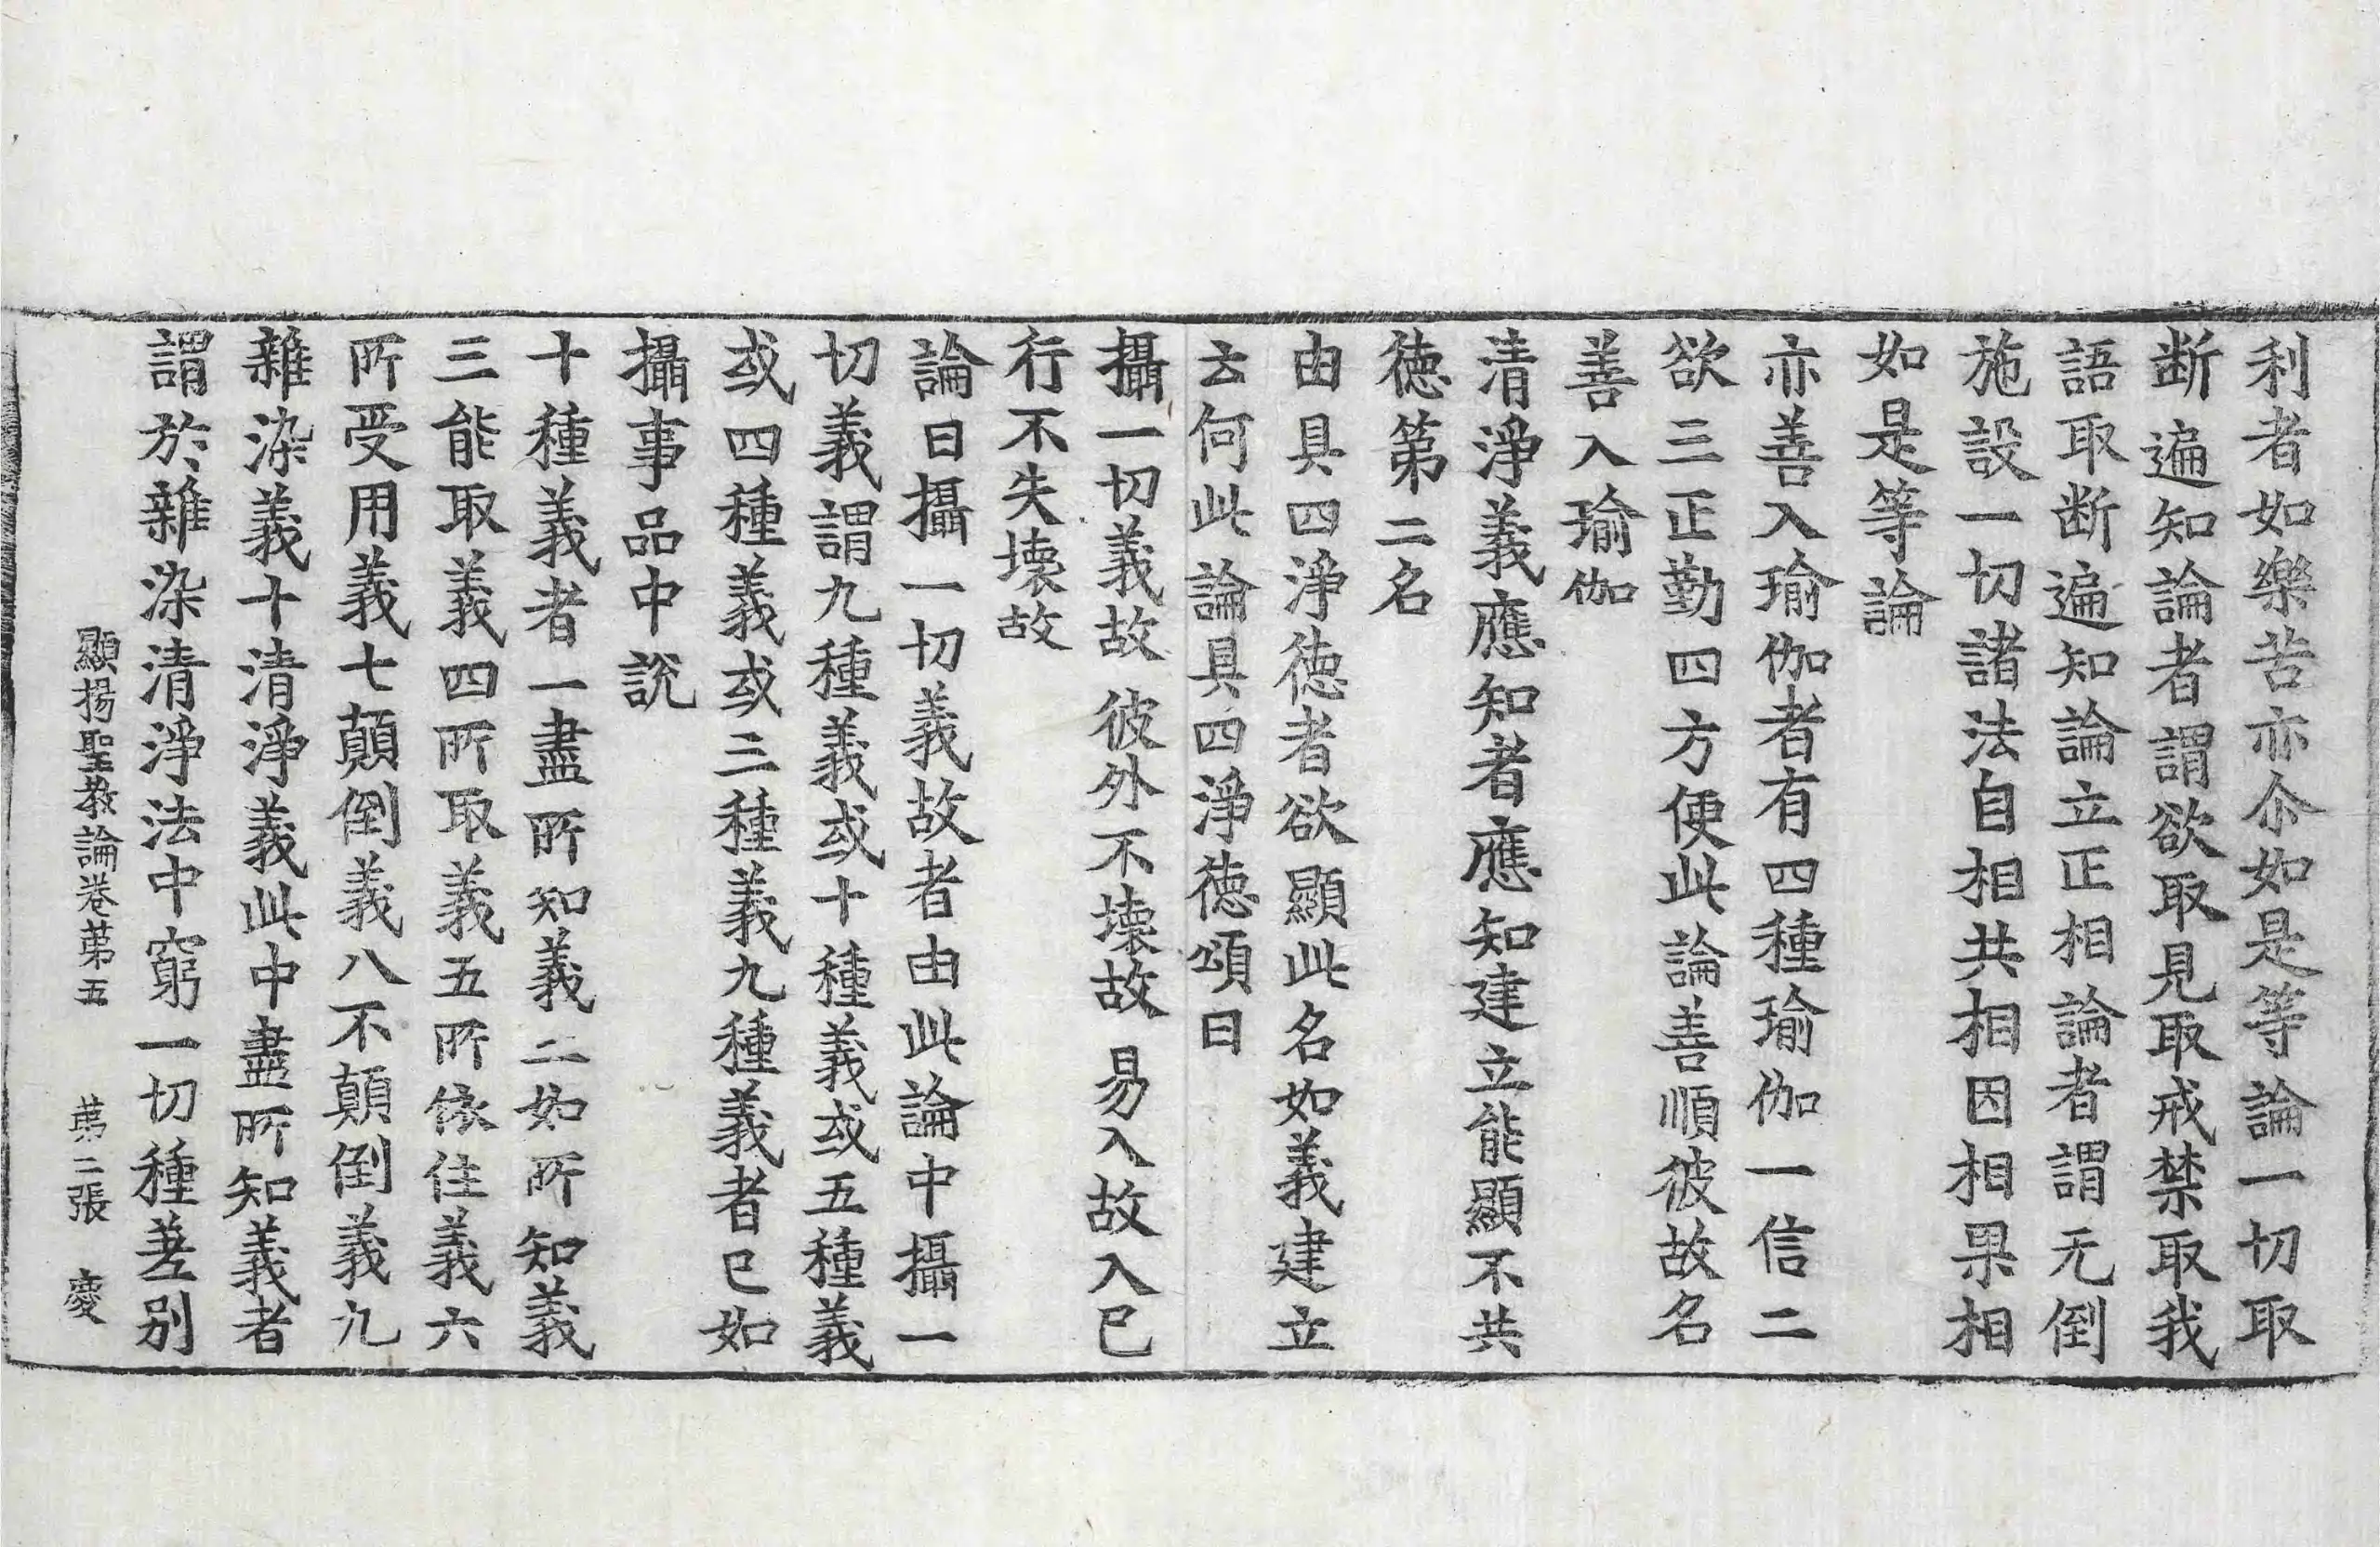 利者如樂苦亦尒如是等論一切取
断遍知論者謂欲取見取戒禁取我
語取断遍知論立正相論者謂无倒
施設一切諸法自相共相因相果相
如是等論
亦善入瑜伽者有四種瑜伽一信二
欲三正勤四方便此論善順彼故名
善入瑜伽
清淨義應知者應知建立能顯不共
徳第二名
由具四淨徳者欲顯此名如義建立
云何此論具四淨徳頌曰
攝一切義故 彼外不壞故 易入故入已
行不失壞故
論曰攝一切義故者由此論中攝一
切義謂九種義或十種義或五種義
或四種義或三種義九種義者已如
攝事品中說
十種義者一盡所知義二如所知義
三能取義四所取義五所依住義六
所受用義七顛倒義八不顛倒義九
雜染義十清淨義此中盡所知義者
謂於雜染清淨法中窮一切種差别
顯揚聖教論卷苐五 苐二張 慶